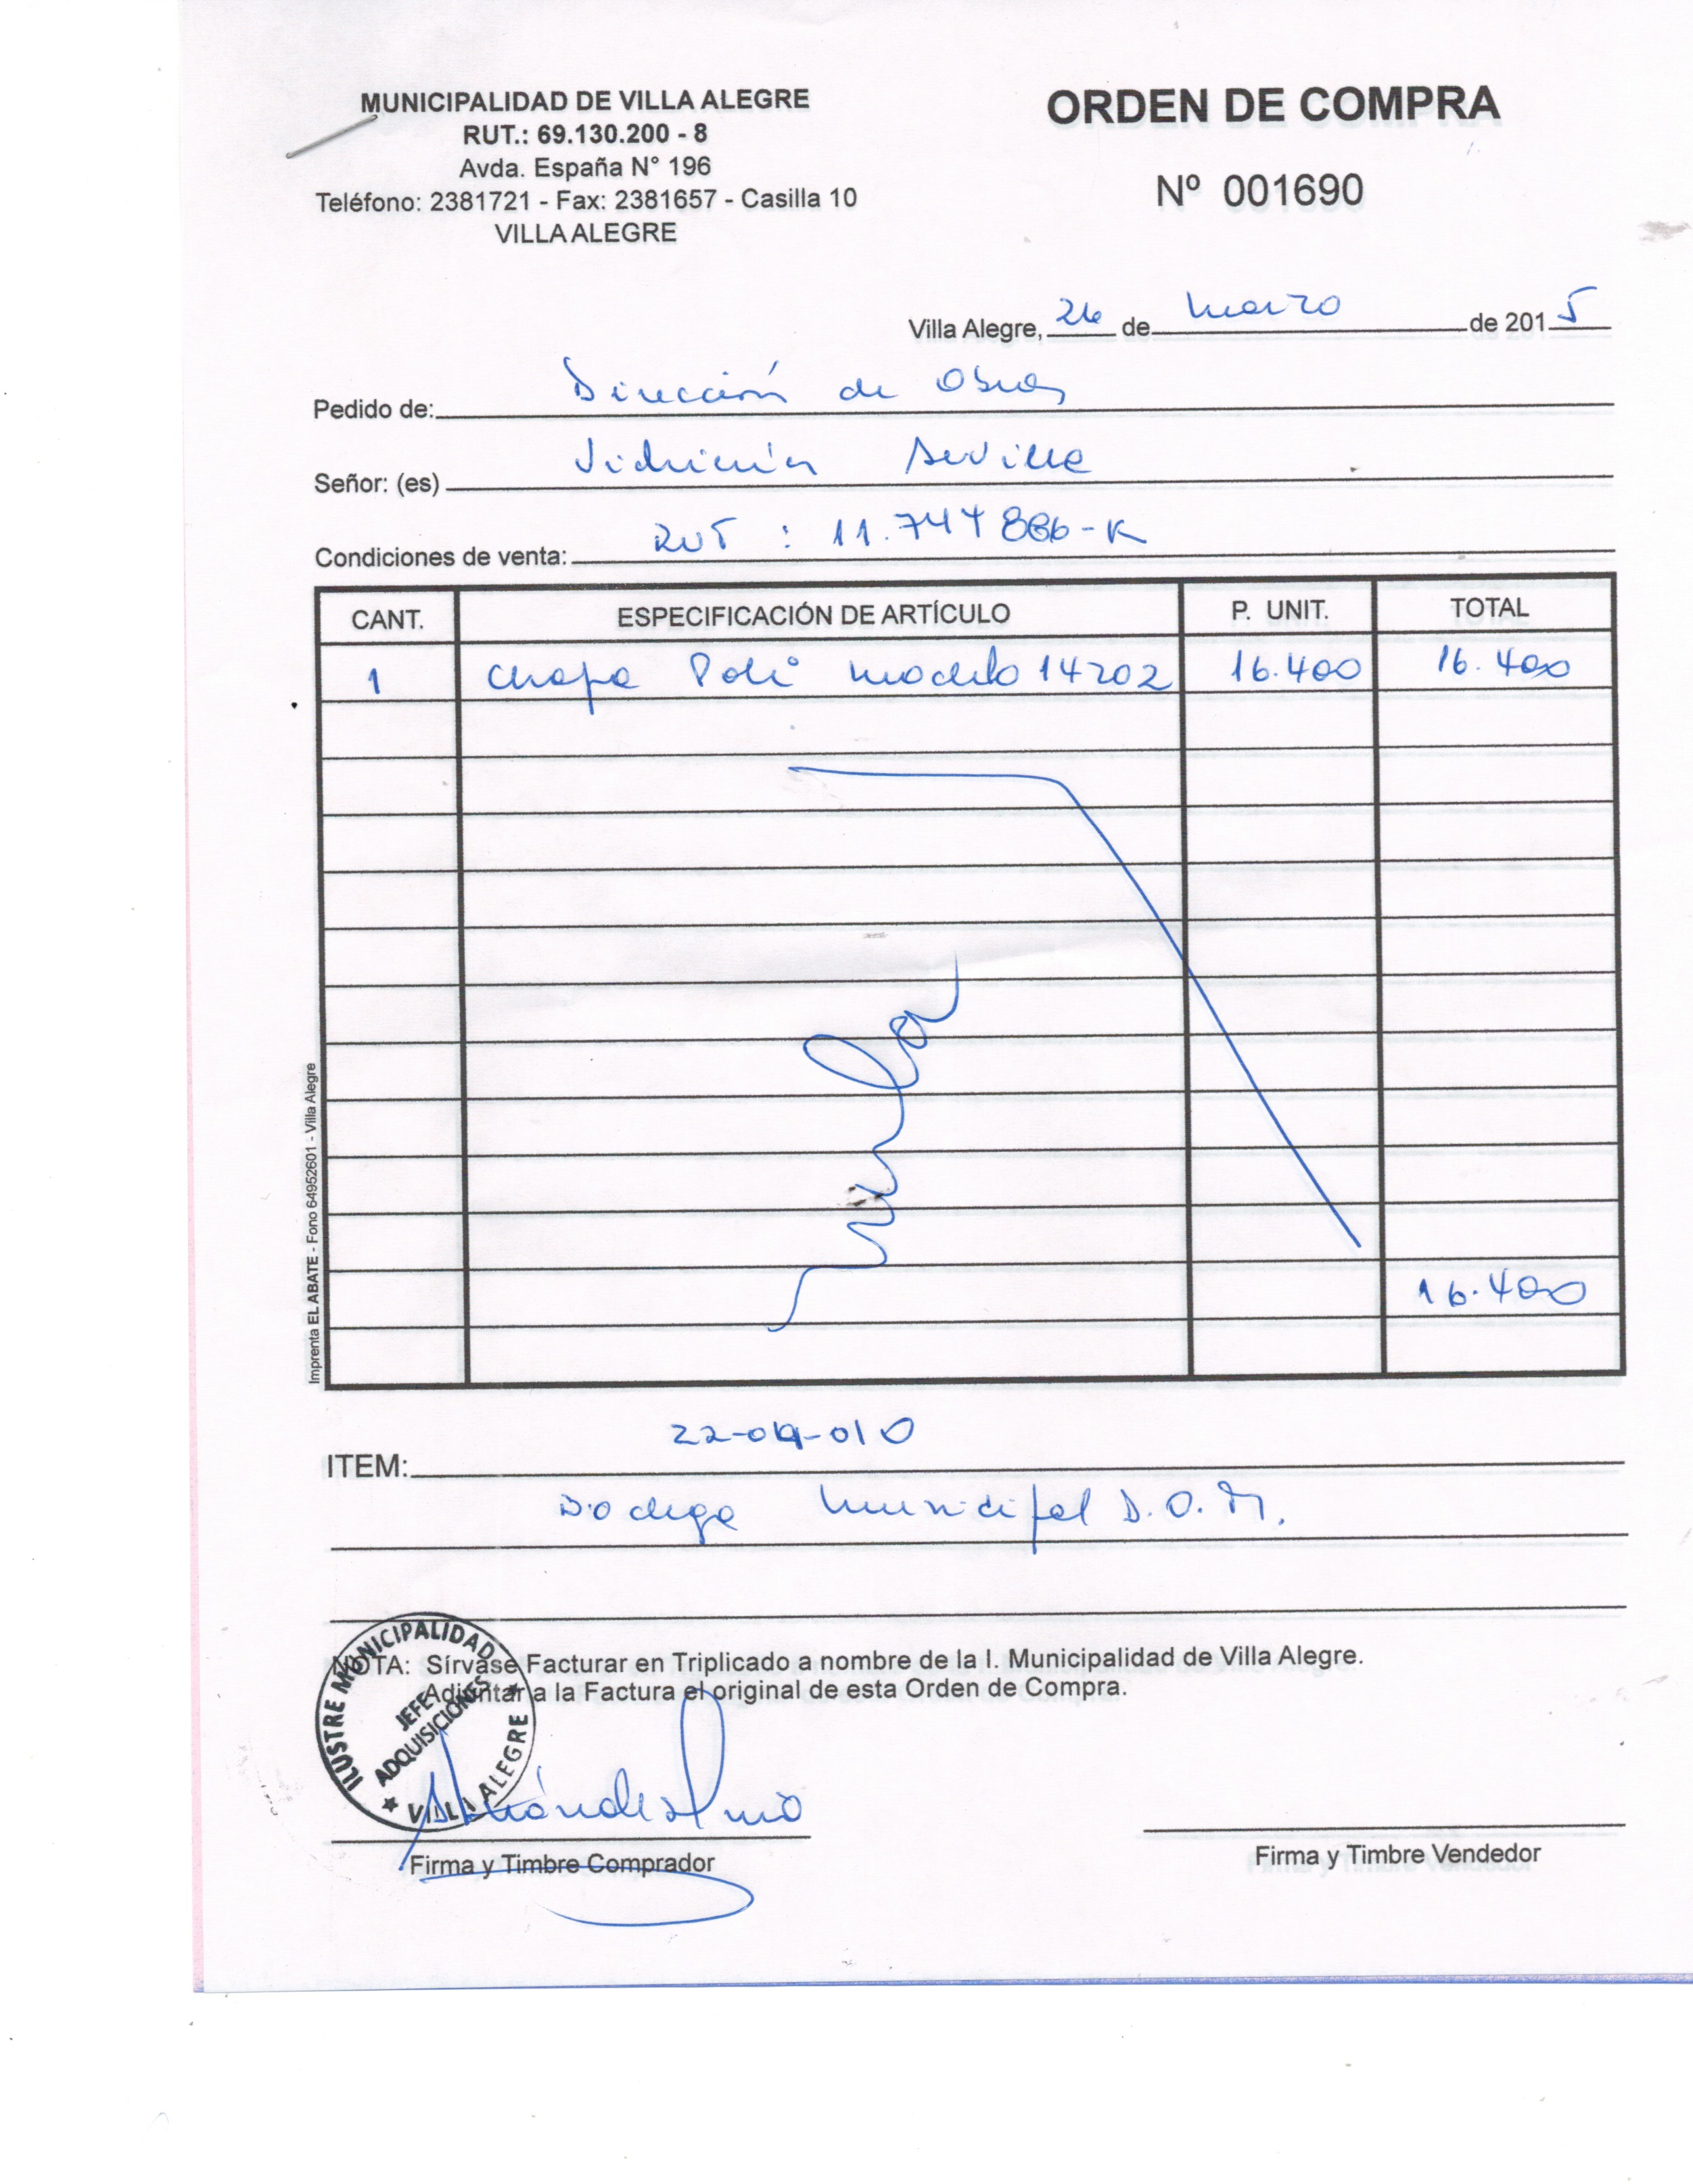 MUNICIPALIDAD DE VILLA ALEGRE
RUT.: 69.130.200 - 8
Avda. España N° 196
Teléfono: 2381721 - Fax: 2381657 - Casilla 10
VILLA ALEGRE
ORDEN DE COMPRA
Nº 001690
Villa Alegre, 26 de marzo de 2015
Pedido de: Dirección de Obras
Señor: (es) Vidriería Sevilla
Condiciones de venta: RUT : 11.744 886-K
CANT. ESPECIFICACIÓN DE ARTÍCULO P. UNIT. TOTAL
1 Chapa Poli modelo 14202 16.400 16.400
nula
16.400
Imprenta EL ABATE - Fono 64952601 - Villa Alegre
ITEM: 22-04-010
Bodega Municipal D.O.M.
NOTA: Sírvase Facturar en Triplicado a nombre de la I. Municipalidad de Villa Alegre.
Adjuntar a la Factura el original de esta Orden de Compra.
ILUSTRE MUNICIPALIDAD
JEFE
ADQUISICIONES
VILLA ALEGRE
Firma y Timbre Comprador
Firma y Timbre Vendedor